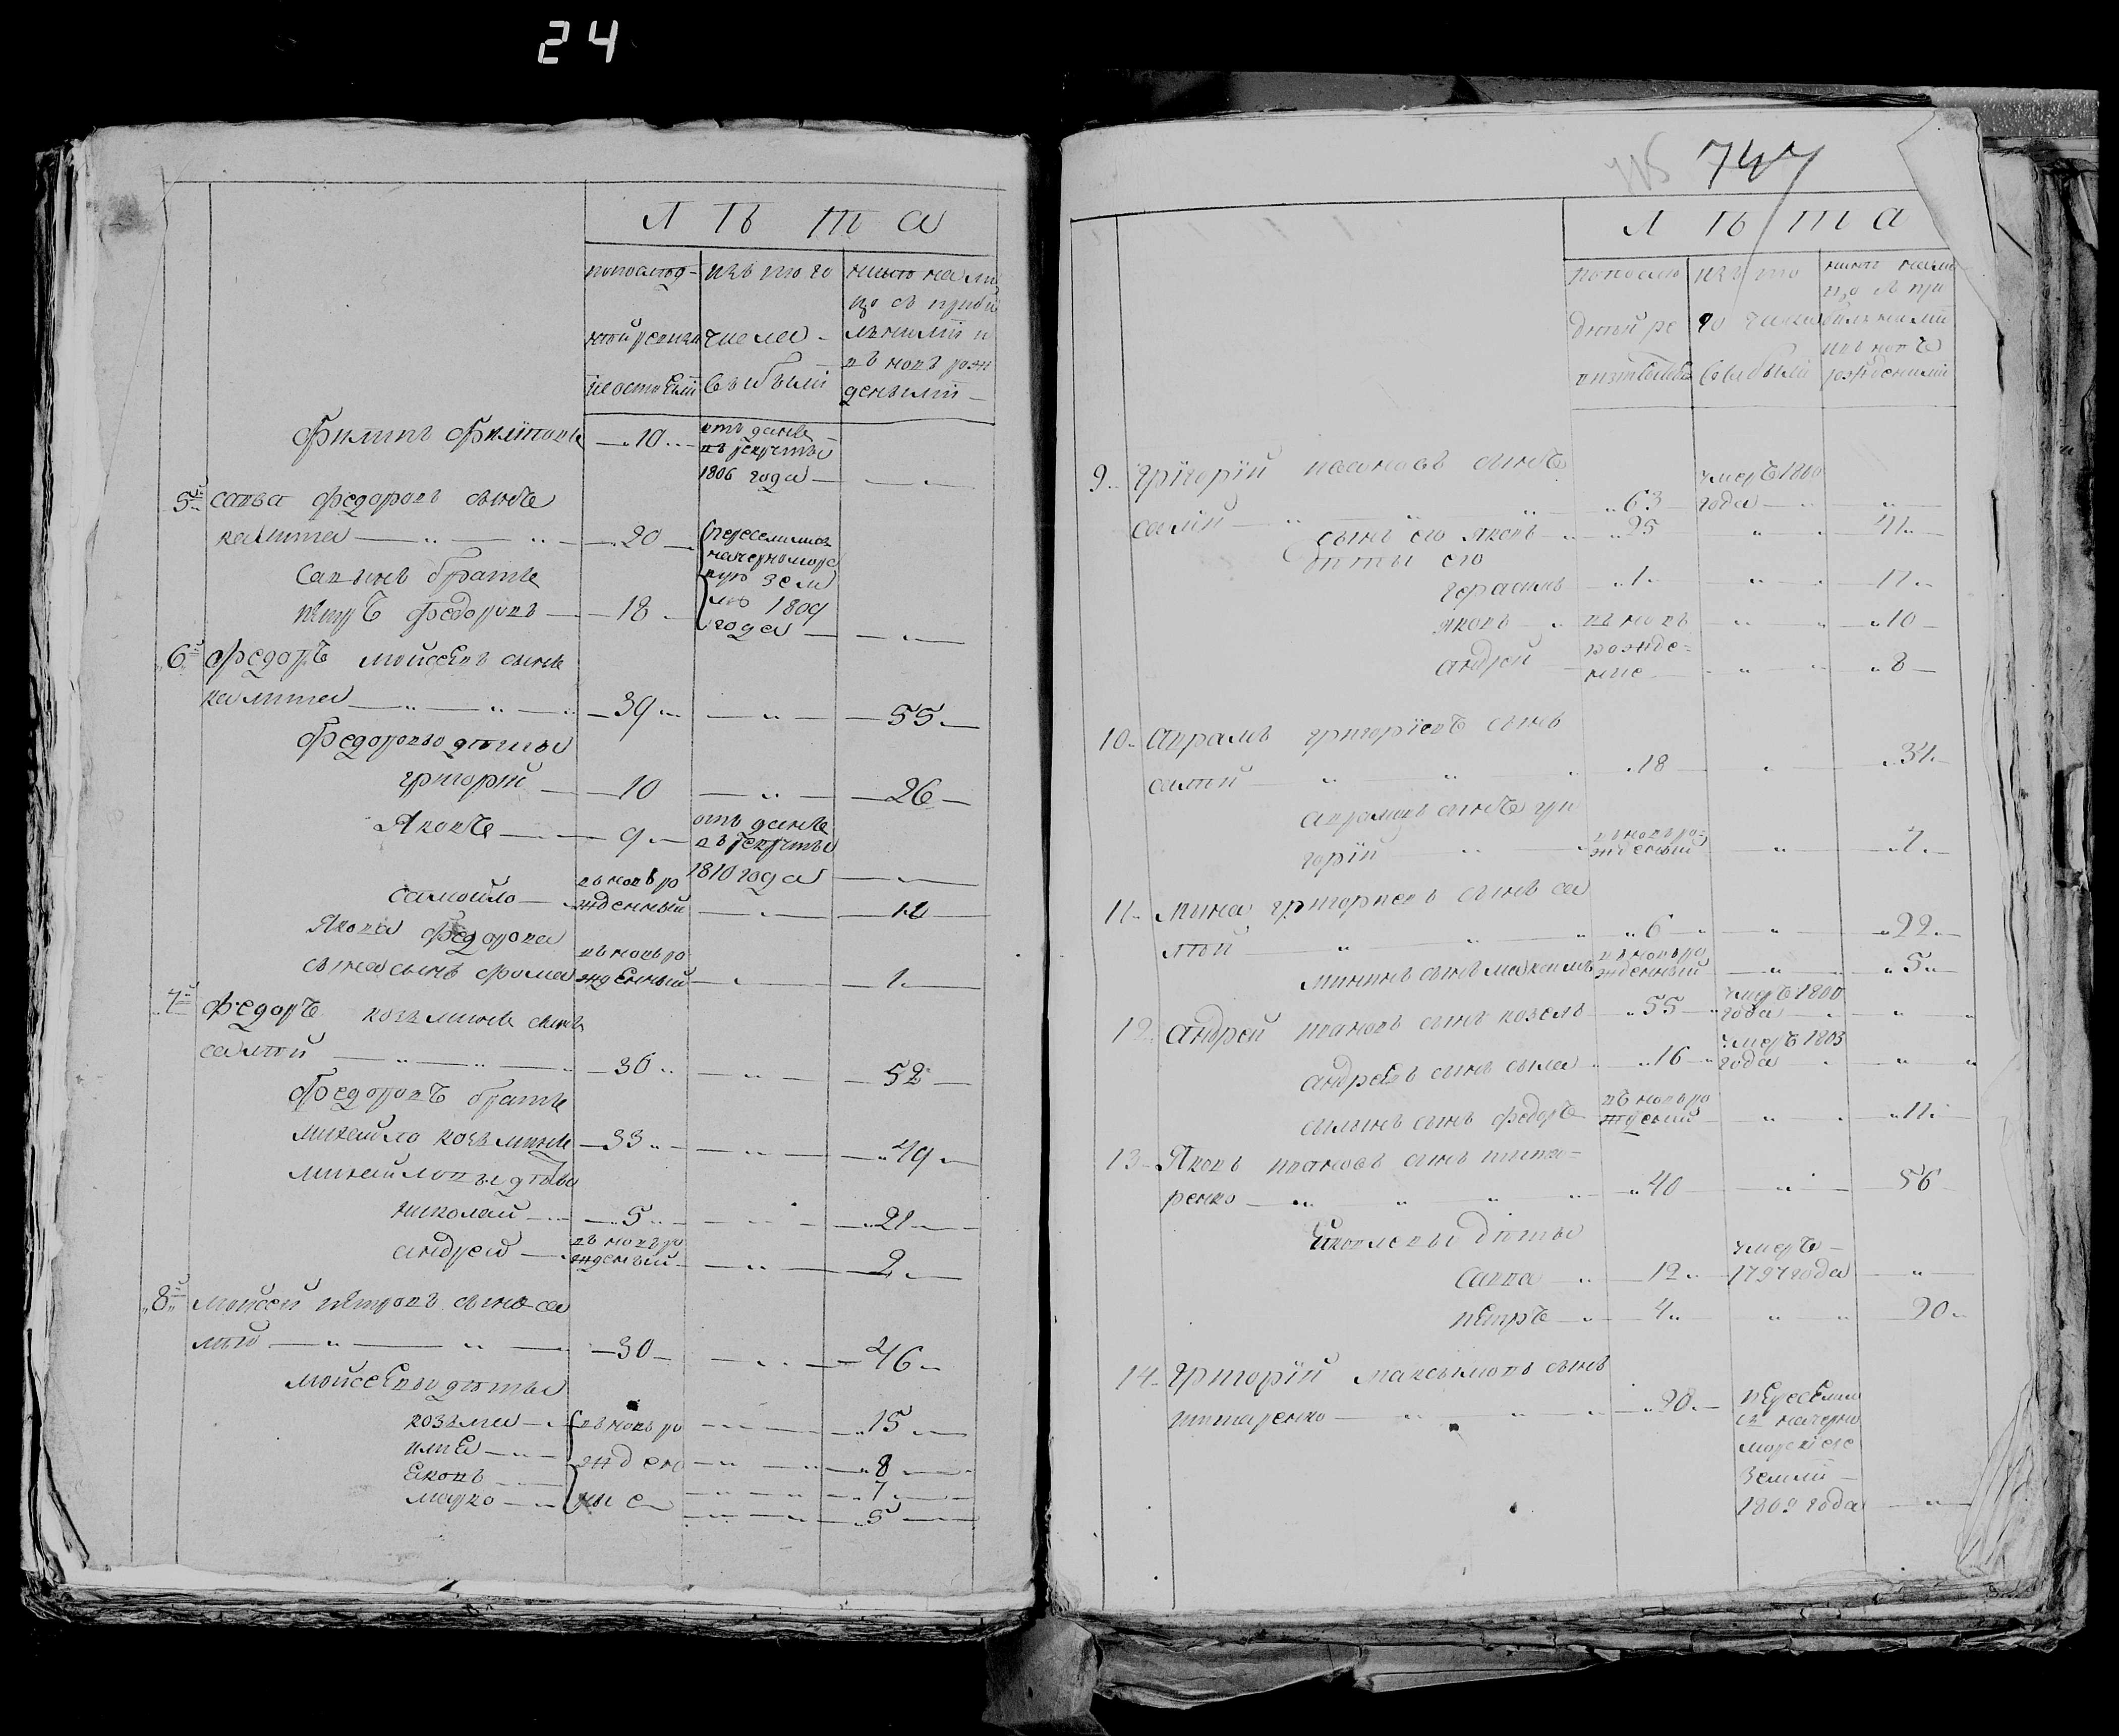 24
Л Ѣ т а
по послѣд-
ней ревизи
и состоемїи
изъ того
числа
выбыли
ныне на ли
цо съ прибы
лыными и
въ новь рож
денными
Филипъ Филїповъ — 10 — отъ данъ
въ рекруты
1806 года —
5й сапва Федоровъ сынъ
калита — 20 — переселились
Савынъ братъ на черноморс
кую зем
Петръ Федоровъ — 18 — лю 1809
года —
6й Федоръ Мойсеевъ сынъ
калита — 39 — 55 —
Федоровы дѣти
григорїй — 10 — 26 —
Яковъ — 9 — отъ данъ
въ рекруты
1810 года —
Самойло — въ новь ро
жденный — 12
Якова Федорова
сына сынъ Фома въ новь ро
жденный — 1 —
7й Федоръ козьминъ сынъ
салый — 36 — 52 —
Федоровъ братъ
михайло козьминъ — 33 — 49 —
михайловы дѣты
николай — 5 — 21 —
андрей — въ новь ро
жденый — 2 —
8й мойсей петровъ сынъ са
лый — 30 — 46 —
мойсеевы дѣты
козьма — въ новь ро — 15 —
илїя — жден — 8 —
Яковъ — 7 —
марко — ные — 5 —
747
Л Ѣ т а
по послѣ
дней ре
изъ то
го числа
выбыли
ныне нали
цо съ при
былыными
и въ новь
рожденными
9. григорїй ивановъ сынъ
салїй — 63 — умеръ 1800
года —
сынъ его яковъ — 25 — 41 —
дѣты его
герасимъ — 1 — 17 —
яковъ — въ новь — 10 —
андрей — рожде-
ные — 8 —
10. аврамъ григорїевъ сынъ
салый — 18 — 34 —
аврамовъ сынъ гри
горїй — въ новь ро-
жденый — 7 —
11. мина григориевъ сынъ са
лый — 6 — 22 —
мининъ сынъ максимъ въ новь ро
жденный — 5 —
12. андрей ивановъ сынъ козелъ — 55 — умеръ 1800
года —
андреевъ сынъ сыла — 16 — умеръ 1803
года —
сылынъ сынъ федоръ въ новь ро
жденый — 11 —
13. Яковъ ивановъ сынъ тита-
ренко — 40 — 56
Яковлевы дѣты
Савва — 12 — умеръ —
1797 года —
петръ — 4 — 20 —
14. григорїй максымовъ сынъ
титаренко — 20 — переселил
ся на черно
морские
Земли —
1809 года —